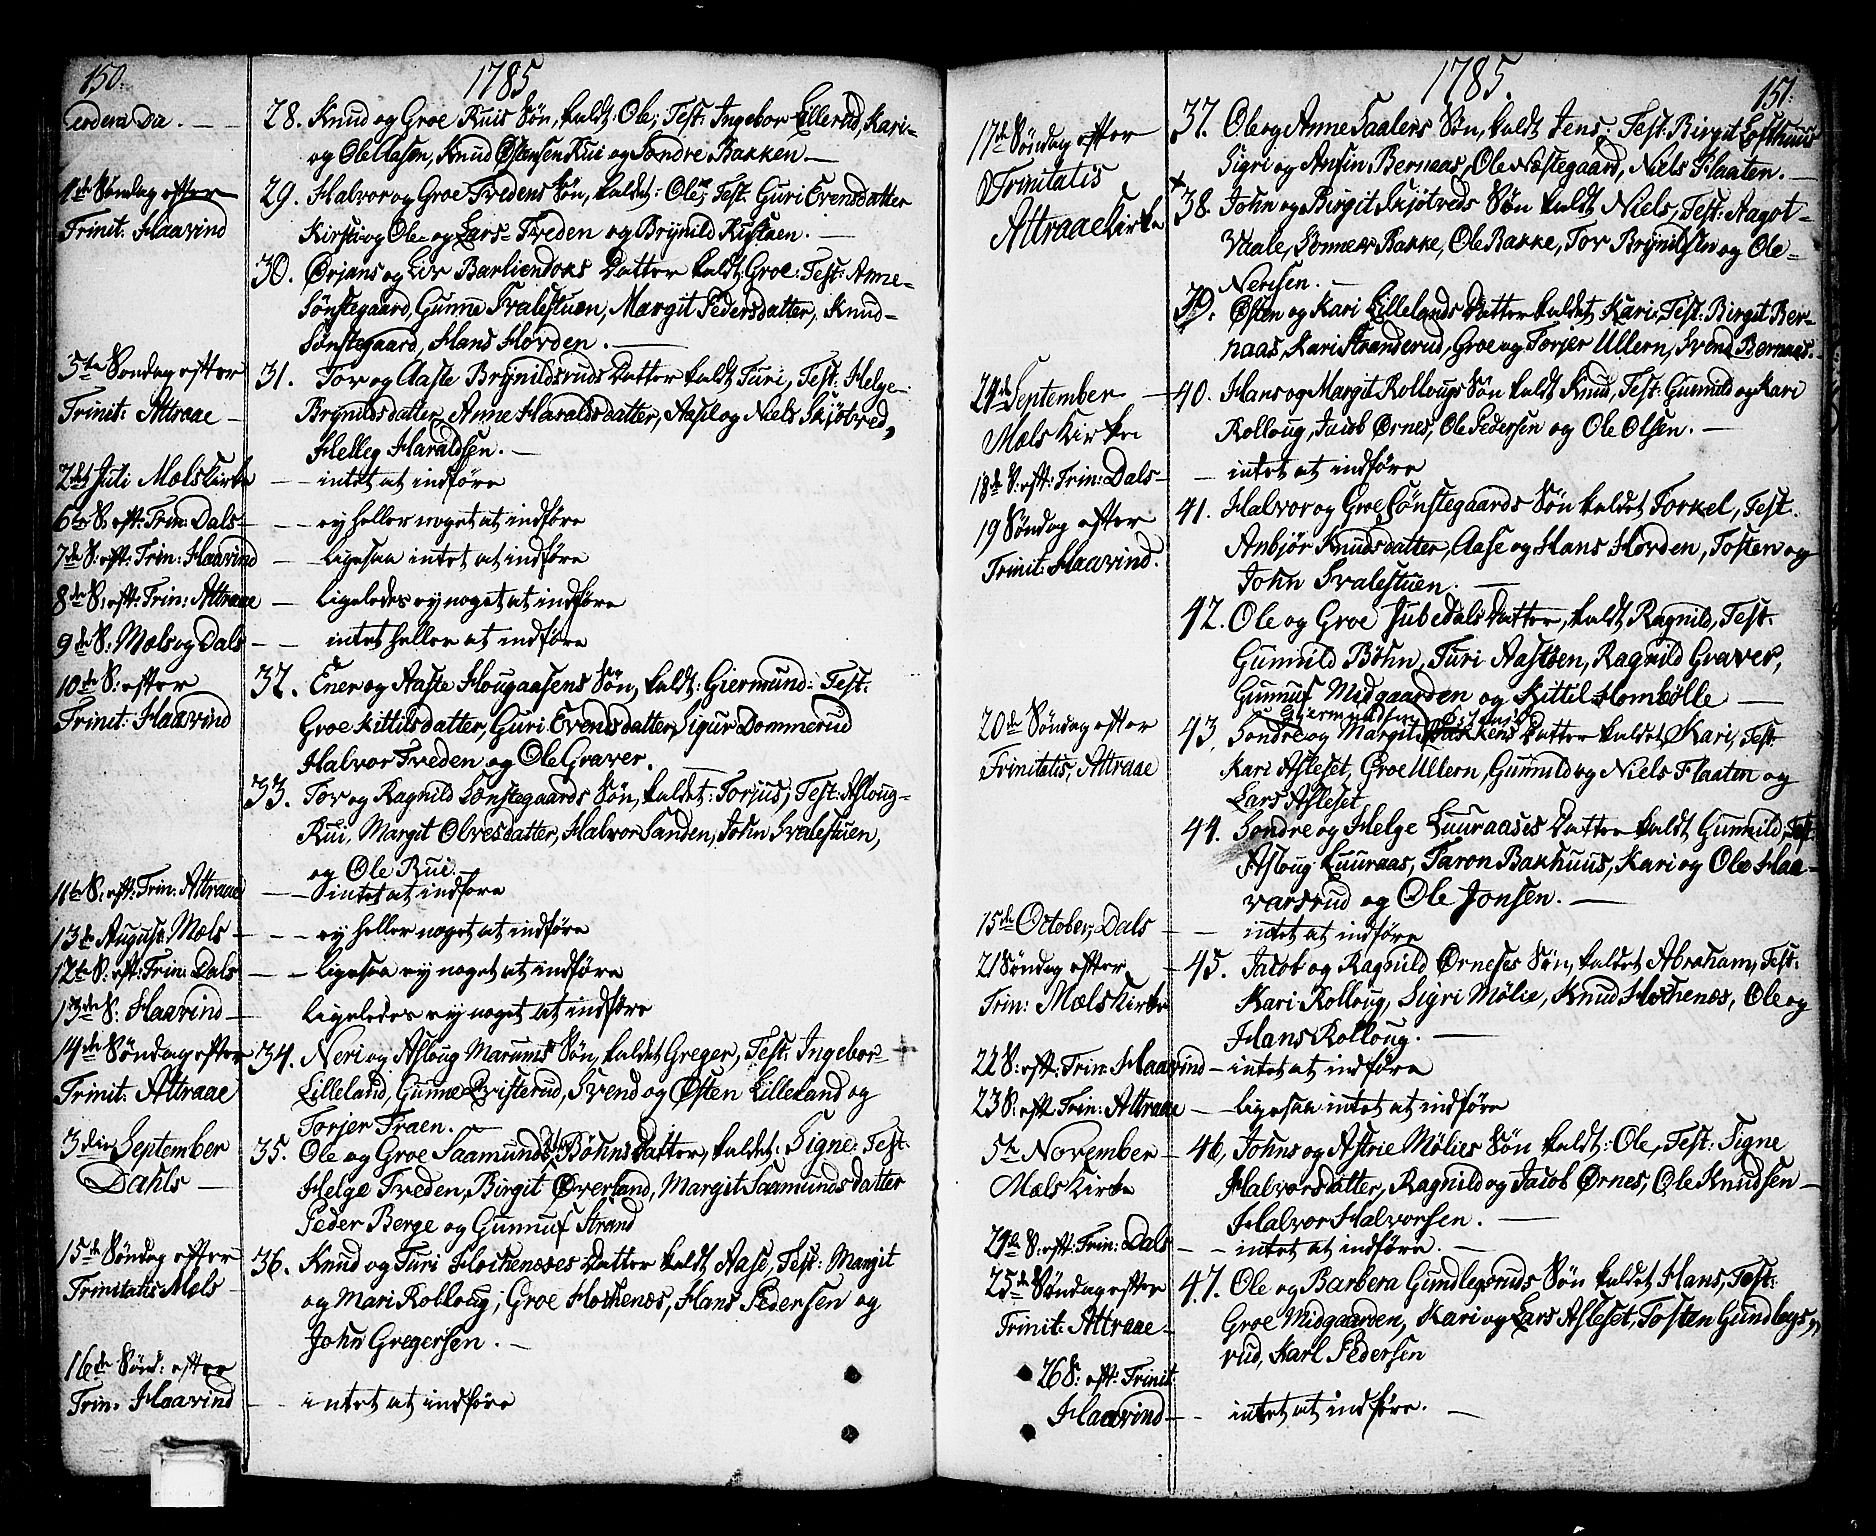 150.
1785
Eerdem Da . —
28. Knud og Groe Ruis Søn, kaldt: Ole; Test: Ingebor Lillerud, Kari-
og Ole Aasen, Knud Østensen Rui og Sondre Bakken —
4de Søndag efter
Trinit: Haavind
29. Halvor og Groe Tvedens Søn, kaldet: Ole; Test: Guri Evensdatter
Kirsti og Ole og Lars Tveden og Brynild Rustaen. —
30. Ørjans og Liv Barliendoks Datter kaldt: Groe: Test: Anne-
Sønstegaard, Gunne Svalestuen, Margit Pedersdatter, Knud-
Sønstegaard, Hans Hovden. —
5te Søndag efter
Trinit: Attraae —
31. Tov og Aaste Brynildsruds Datter kaldt Turi, Test: Helge-
Brynildsdatter, Anne Haraldsdatter, Aase og Niels Skjøtved,
Helleg Haraldsen. —
2det Juli Mæls Kirke — — intet at indføre
6te S: eft: Trin: Dals — — — ey heller noget at indføre
7de S: eft: Trin: Haavind — ligesaa intet at indføre
8de S: eft: Trin: Attraae — ligeledes ey noget at indføre
9de S: Mæls og Dals — — intet heller at indføre
10de S: efter
Trinit: Haavind
32. Ener og Aaste Hougaasens Søn, kaldt: Giermund: Test:
Groe Kittilsdatter, Guri Evensdatter, Sigur Dommerud
Halvor Tveden og Ole Graver.
33. Tov og Ragnild Sønstegaards Søn, kaldet: Torjus; Test: Asloug-
Rui, Margit Olvesdatter, Halvor Sanden, John Svalestuen,
og Ole Rue.
11te S: eft: Trin: Attraae — — intet at indføre
13de August Mæls — — — ey heller noget at indføre
12te S: eft: Trin: Dals — — — ligesaa ey noget at indføre
13de S: Haavind — ligeledes ey noget at indføre
14de Søndag efter
Trinit: Attraae
34. Neri og Asloug Marums Søn, kaldet Greger, Test: Ingebor-
Lilleland, Gunne Qvisterud, Svend og Østen Lilleland og
Torjer Traen. —
3die September
Dahls —
35. Ole og Groe Saamunds Bøhns Datter, kaldet: Signe: Test:
Helge Tveden, Birgit Øverland, Margit Saamundsdatter
Peder Berge og Gunnuf Strand
15de Søndag efter
Trinitatis Mæls —
36. Knud og Turi Hothenæses Datter kaldt Aase, Test: Margit
og Mari Rolloug, Groe Hothenæs, Hans Pedersen og
John Gregersen. —
16de Sønd: efter
Trin: Haavind — — intet at indføre
1785.
151.
17de Søndag efter
Trinitatis
Attraae Kirke
37. Ole og Anne Saalens Søn, kaldt Jens; Test: Birgit Lofthuus
Sigri og Ansin Bernaas, Ole Næstegaard, Niels Flaaten. —
38. John og Birgit Skjøtveds Søn kaldt Niels, Test: Aagot-
Vaale, Sonnev Bakke, Ole Bakke, Tov Brynildsen og Ole-
Nerisen. —
39. Østen og Kari Lillelands Datter kaldet Kari, Test: Birgit Ber-
naas, Kari Stranderud, Groe og Torjer Ullern, Svend Bernaas.
24de September —
Mæls Kirke
40. Hans og Margit Rollougs Søn kaldt Knud, Test: Gunnild og Kari
Rolloug, Jacob Ørnes, Ole Pedersen og Ole Olsen. —
18de S: eft: Trin: Dals — — intet at indføre
19 Søndag efter
Trinit: Haavind.
41. Halvor og Groe Sønstegaards Søn kaldet Torkel, Test.
Anbjør Knudsdatter, Aase og Hans Hovden, Tosten og
John Svalestuen. —
42. Ole og Groe Jubedals Datter, kaldt Ragnild, Test:
Gunnild Bøhn, Turi Aastøen, Ragnild Graver,
Gunnuf Midgaarden og Kittil Hombølle —
20de Søndag efter
Trinitatis, Attraae
43. Sondre og Margit Bakkens Datter kaldet Kari, Test:
Kari Asleset, Groe Ullern, Gunnild og Niels Flaaten og
Lars Asleset
44. Sondre og Helge Luuraases Datter kaldt Gunnild, Test:
Asloug Luuraas, Taron Bakhuus, Kari og Ole Haa-
varsrud og Ole Jonsen. —
15de October, Dals — — intet at indføre
21 Søndag efter
Trin: Mæls Kirke
45. Jacob og Ragnild Ørneses Søn, kaldet Abraham, Test:
Kari Rolloug, Sigri Mølie, Knud Hothenæs, Ole og
Hans Rolloug. —
22 S: eft: Trin: Haavind — intet at indføre
23 S: eft: Trin: Attraae — ligesaa intet at indføre
5te November —
Mæls Kirke
46, Johns og Astrie Mølies Søn kaldt: Ole, Test: Signe
Halvorsdatter, Ragnild og Jacob Ørnes, Ole Knudsen —
Halvor Halvorsen. —
24de S: eft: Trin: Dals — — intet at indføre. —
25de Søndag efter
Trinit: Attraae —
47. Ole og Barbera Gundlegsruds Søn kaldet Hans, Test:
Groe Midgaarden, Kari og Lars Asleset, Tosten Gundlegs,
rud, Karl Pedersen
26 S: eft: Trinit
Haavind — — intet at indføre. —